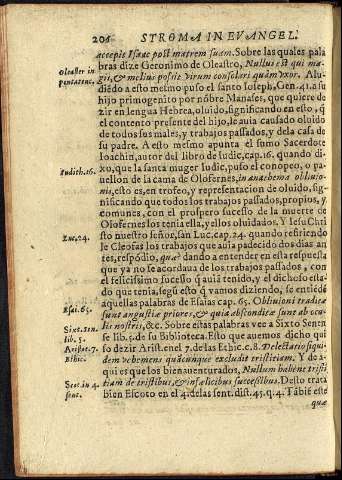 206 STROMA IN EVANGEL.
accepit Isaac post matrem suam. Sobre las quales pala
bras dize Geronimo de Oleastro, Nullus est qui ma-
Oleaster in
pentateuc.
gis, & melius possit virum consolari quàm vxor. Alu-
diédo a esto mesmo puso el santo Ioseph, Gen. 41. a su
hijo primogenito por nóbre Manases, que quiere de
zir en lengua Hebrea, oluido, significando en esto, q̃
el contento presente del hijo, le auia causado oluido
de todos sus males, y trabajos passados, y dela casa de
su padre. A este mesmo apunta el sumo Sacerdote
Ioachin, autor del libro de Iudic, cap. 16. quando di-
Iudith. 16.
xo, que la santa muger Iudic, puso el conopeo, o pa-
uellon de la cama de Olofernes, in anathema obliuio-
nis, esto es, en trofeo, y representacion de oluido, sig-
nificando que todos los trabajos passados, propios, y
comunes, con el prospero sucesso de la muerte de
Olofernes los tenia ella, y ellos oluidados. Y Iesu Chri
Luc. 24.
sto nuestro señor, san Luc. cap. 24. quando refiriendo
le Cleofas los trabajos que auia padecido dos dias an
tes, respódio, quæ? dando a entender en esta respuesta
que ya no se acordaua de los trabajos passados, con
el felicissimo sucesso q̃ auia tenido, y el dichoso esta-
do que tenia, segú esto q̃ vamos diziendo, se entiéde
Esai. 65.
aquellas palabras de Esaias cap. 65. Obliuioni traditæ
sunt angustiæ priores, & quia absconditæ sunt ab ocu-
Sixt. Sen.
lib. 5.
lis nostris, &c. Sobre estas palabras vee a Sixto Senen
se lib. 5. de su Biblioteca. Esto que auemos dicho qui
Aristot. 7.
Ethic.
so dezir Arist. en el 7. de las Ethic. c. 8. Delectatio siqui-
dem vehemens quàcunque excludit tristitiam. Y de a-
qui es que los bienauenturados, Nullum habent tristi
Scot in 4.
sent.
tiam de tristibus, & infœlicibus succesibus. Desto trata
bien Escoto en el 4. de las sent. dist. 45. q. 4. Tãbié este
quæ